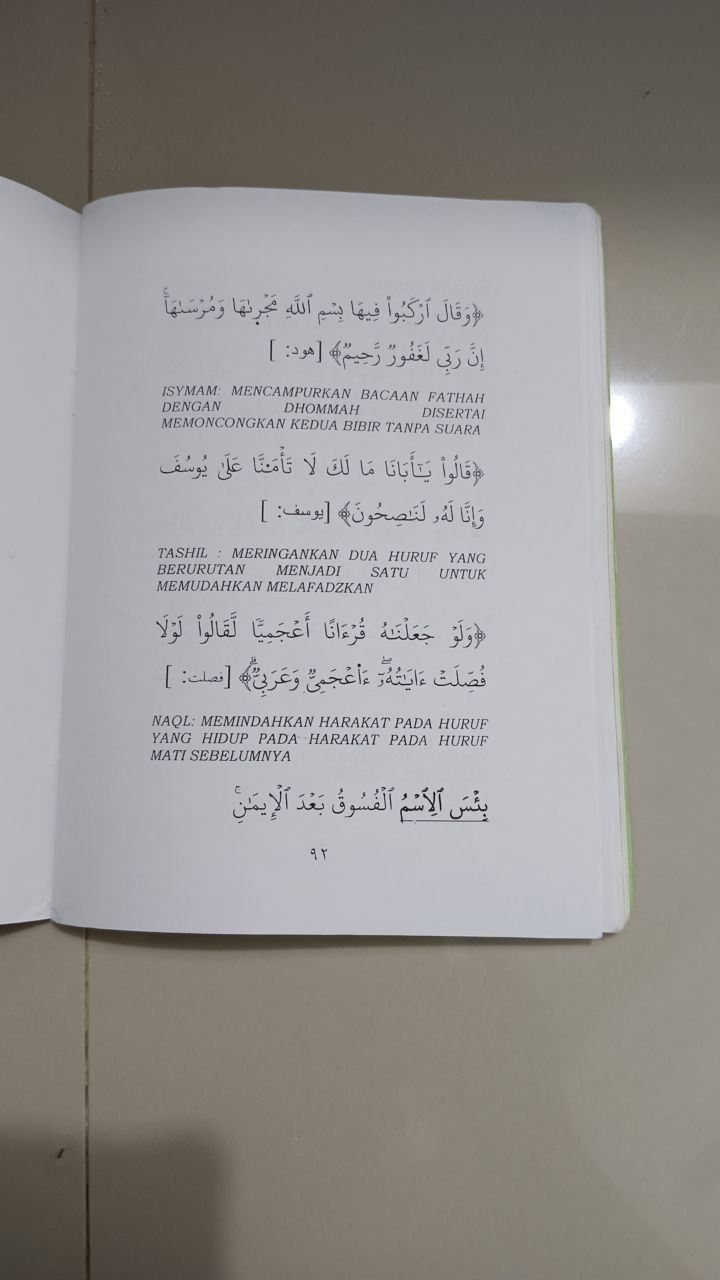 ﴿وَقَالَ ٱرْكَبُوا۟ فِيهَا بِسْمِ ٱللَّهِ مَجْر۪ىٰهَا وَمُرْسَىٰهَآ ۚ
إِنَّ رَبِّى لَغَفُورٌ رَّحِيمٌ﴾ [هود: ]
ISYMAM: MENCAMPURKAN BACAAN FATHAH
DENGAN DHOMMAH DISERTAI
MEMONCONGKAN KEDUA BIBIR TANPA SUARA
﴿قَالُوا۟ يَـٰٓأَبَانَا مَا لَكَ لَا تَأْمَ۫نَّا عَلَىٰ يُوسُفَ
وَإِنَّا لَهُۥ لَنَـٰصِحُونَ﴾ [يوسف: ]
TASHIL : MERINGANKAN DUA HURUF YANG
BERURUTAN MENJADI SATU UNTUK
MEMUDAHKAN MELAFADZKAN
﴿وَلَوْ جَعَلْنَـٰهُ قُرْءَانًا أَعْجَمِيًّا لَّقَالُوا۟ لَوْلَا
فُصِّلَتْ ءَايَـٰتُهُۥٓ ۖ ءَا۬عْجَمِىٌّ وَعَرَبِىٌّ ۗ﴾ [فصلت: ]
NAQL: MEMINDAHKAN HARAKAT PADA HURUF
YANG HIDUP PADA HARAKAT PADA HURUF
MATI SEBELUMNYA
بِئْسَ ٱلِٱسْمُ ٱلْفُسُوقُ بَعْدَ ٱلْإِيمَـٰنِ ۚ
٩٢